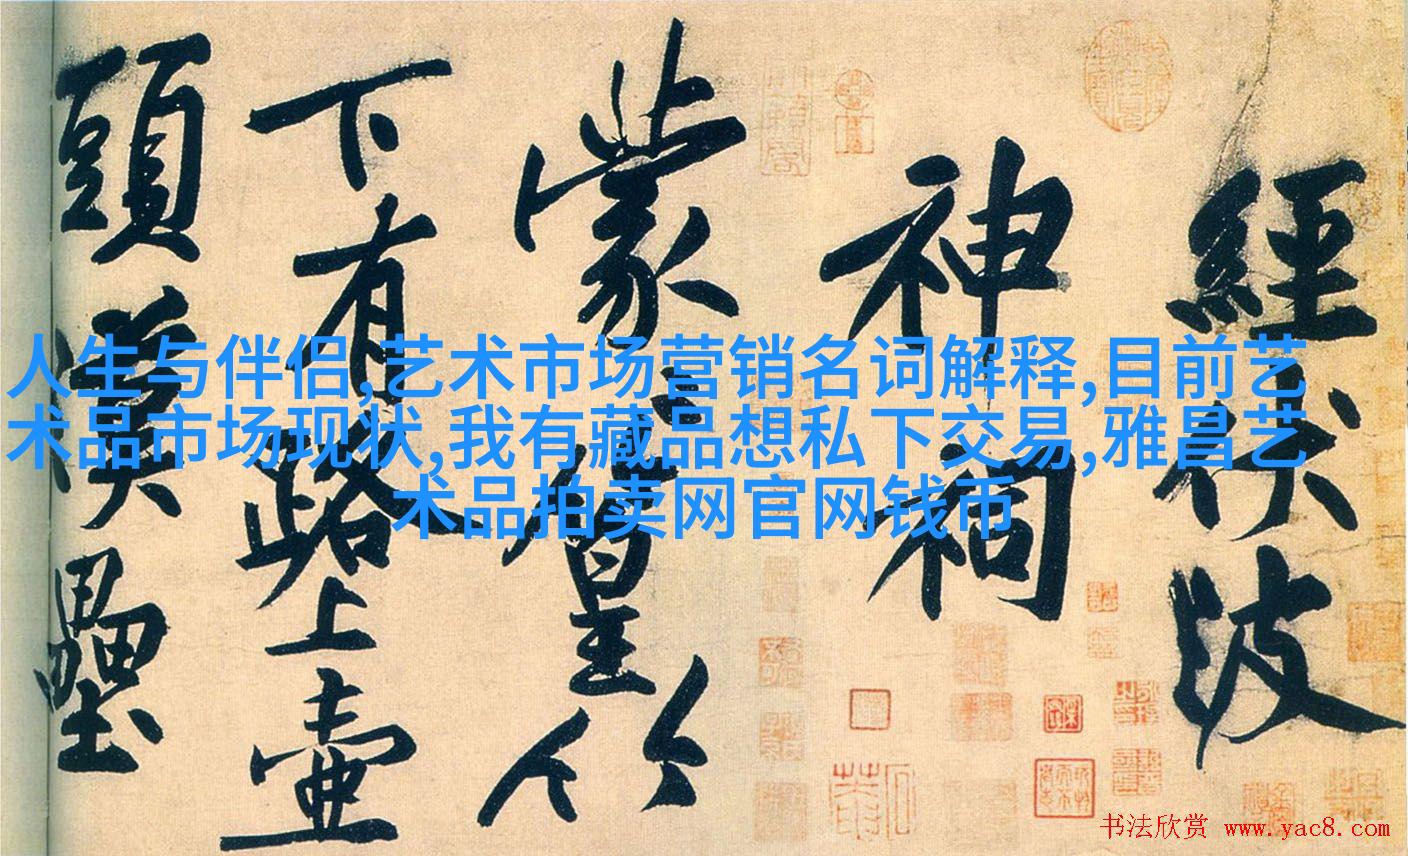 經伏波
神祠
蒙〻篁竹
下有路上壺
頭漢壘
人生与伴侣,艺术市场营销名词解释,目前艺
术品市场现状,我有藏品想私下交易,雅昌艺
术品拍卖网官网钱币
书法欣赏 www.yac8.com